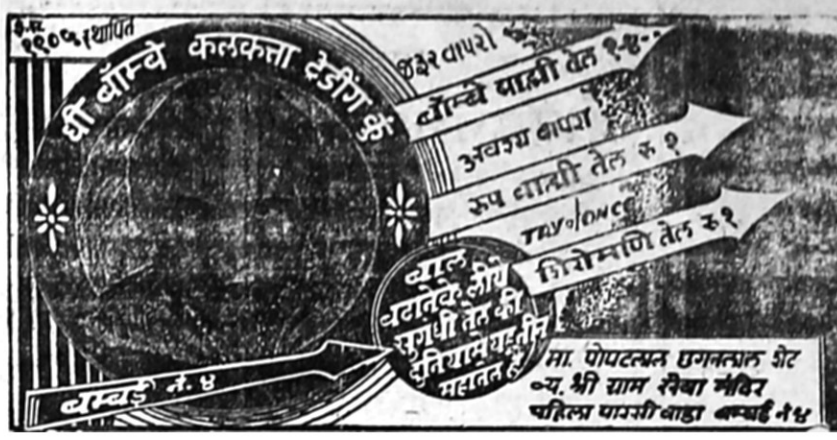 १९०५ स्थापित
धी बॉम्बे कलकत्ता ट्रेडींग कुं
જરૂર વાપરો
बॉम्बे ब्राह्मी तेल १-४
अवश्य वापरा
रुप ब्राह्मी तेल रु १
TRY ONCE
शिरोमणि तेल रु १
बाल
बढानेके लीये
सुगंधी तेल की
दुनियामें यह तीन
बम्बई नं. ४
मा. पोपटलाल छगनलाल शेट
व्य. श्री ग्राम सेवा मंदिर
पहिला पारसी वाडा बम्बई नं ४